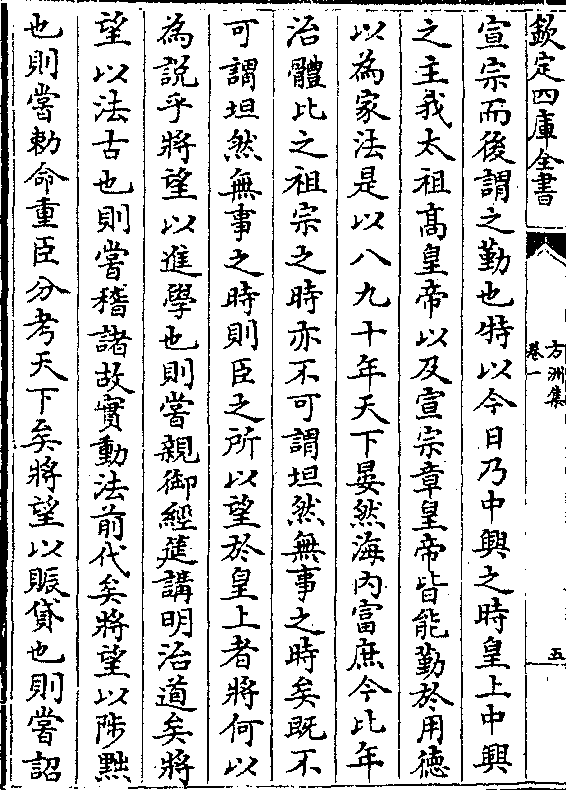 欽定四庫全書
方洲集
卷一
五
宣宗而後謂之勤也特以今日乃中興之時皇上中興
之主我太祖高皇帝以及宣宗章皇帝皆能勤於用徳
以為家法是以八九十年天下晏然海内富庶今比年
治體比之祖宗之時亦不可謂坦然無事之時矣既不
可謂坦然無事之時則臣之所以望於皇上者將何以
為説乎將望以進學也則當親御經筵講明治道矣將
望以法古也則當稽諸故實動法前代矣將望以陟黜
也則當勅命重臣分考天下矣將望以賑貸也則當詔